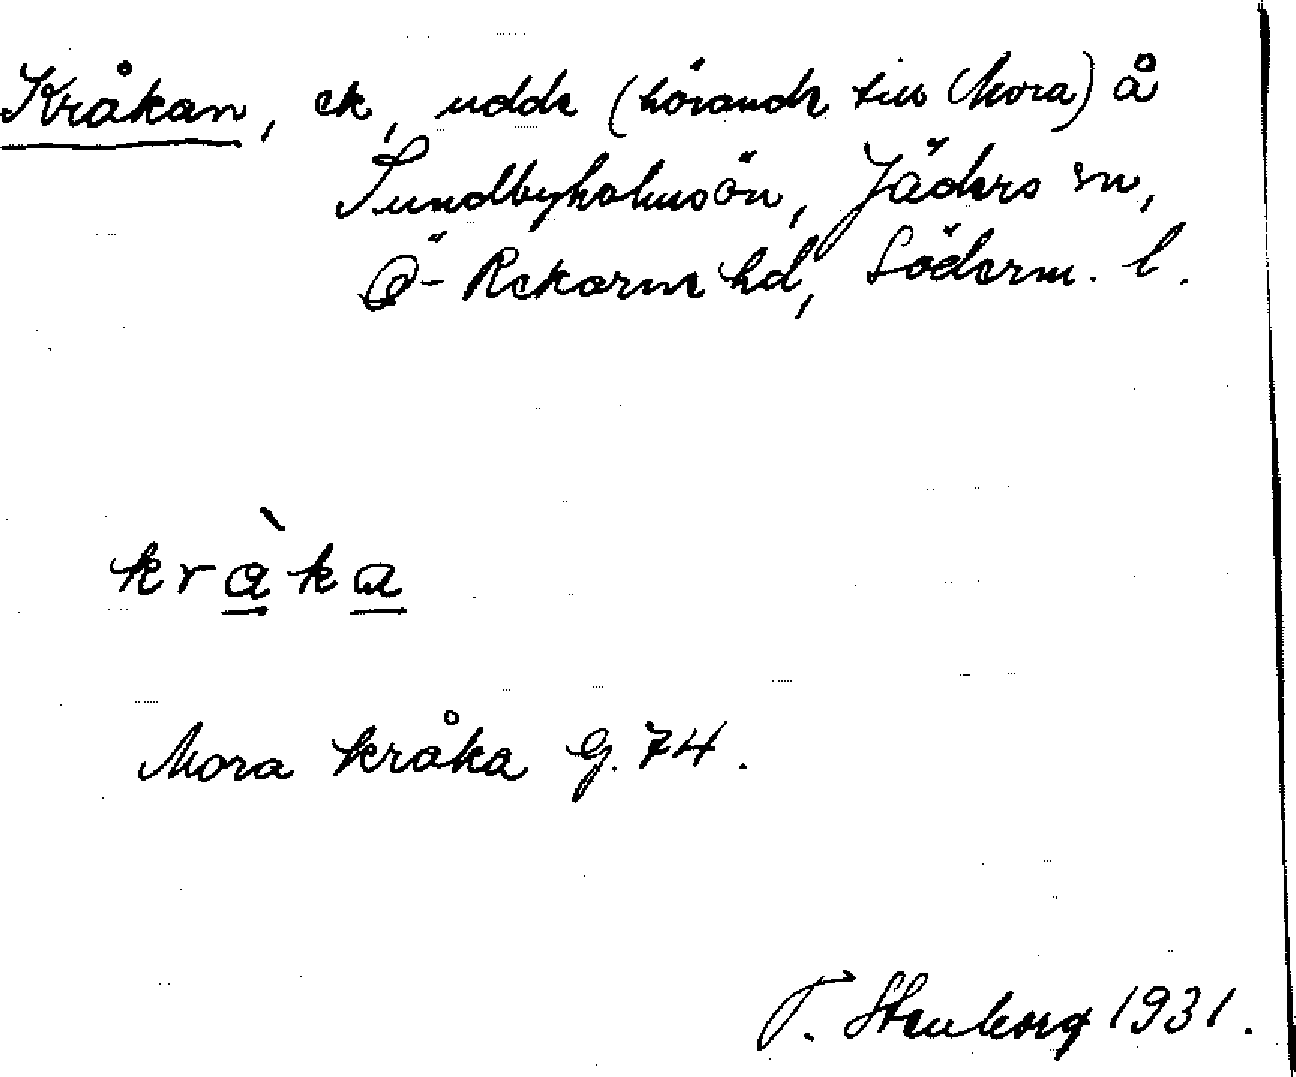 Kråkan, ek, udde (hörande till Mora) å
Sundbyholmsön, Jäders sn,
Ö-Rekarne hd, Söderm. l.
kràka
Mora kråka G. 74.
T. Stenborg 1931.